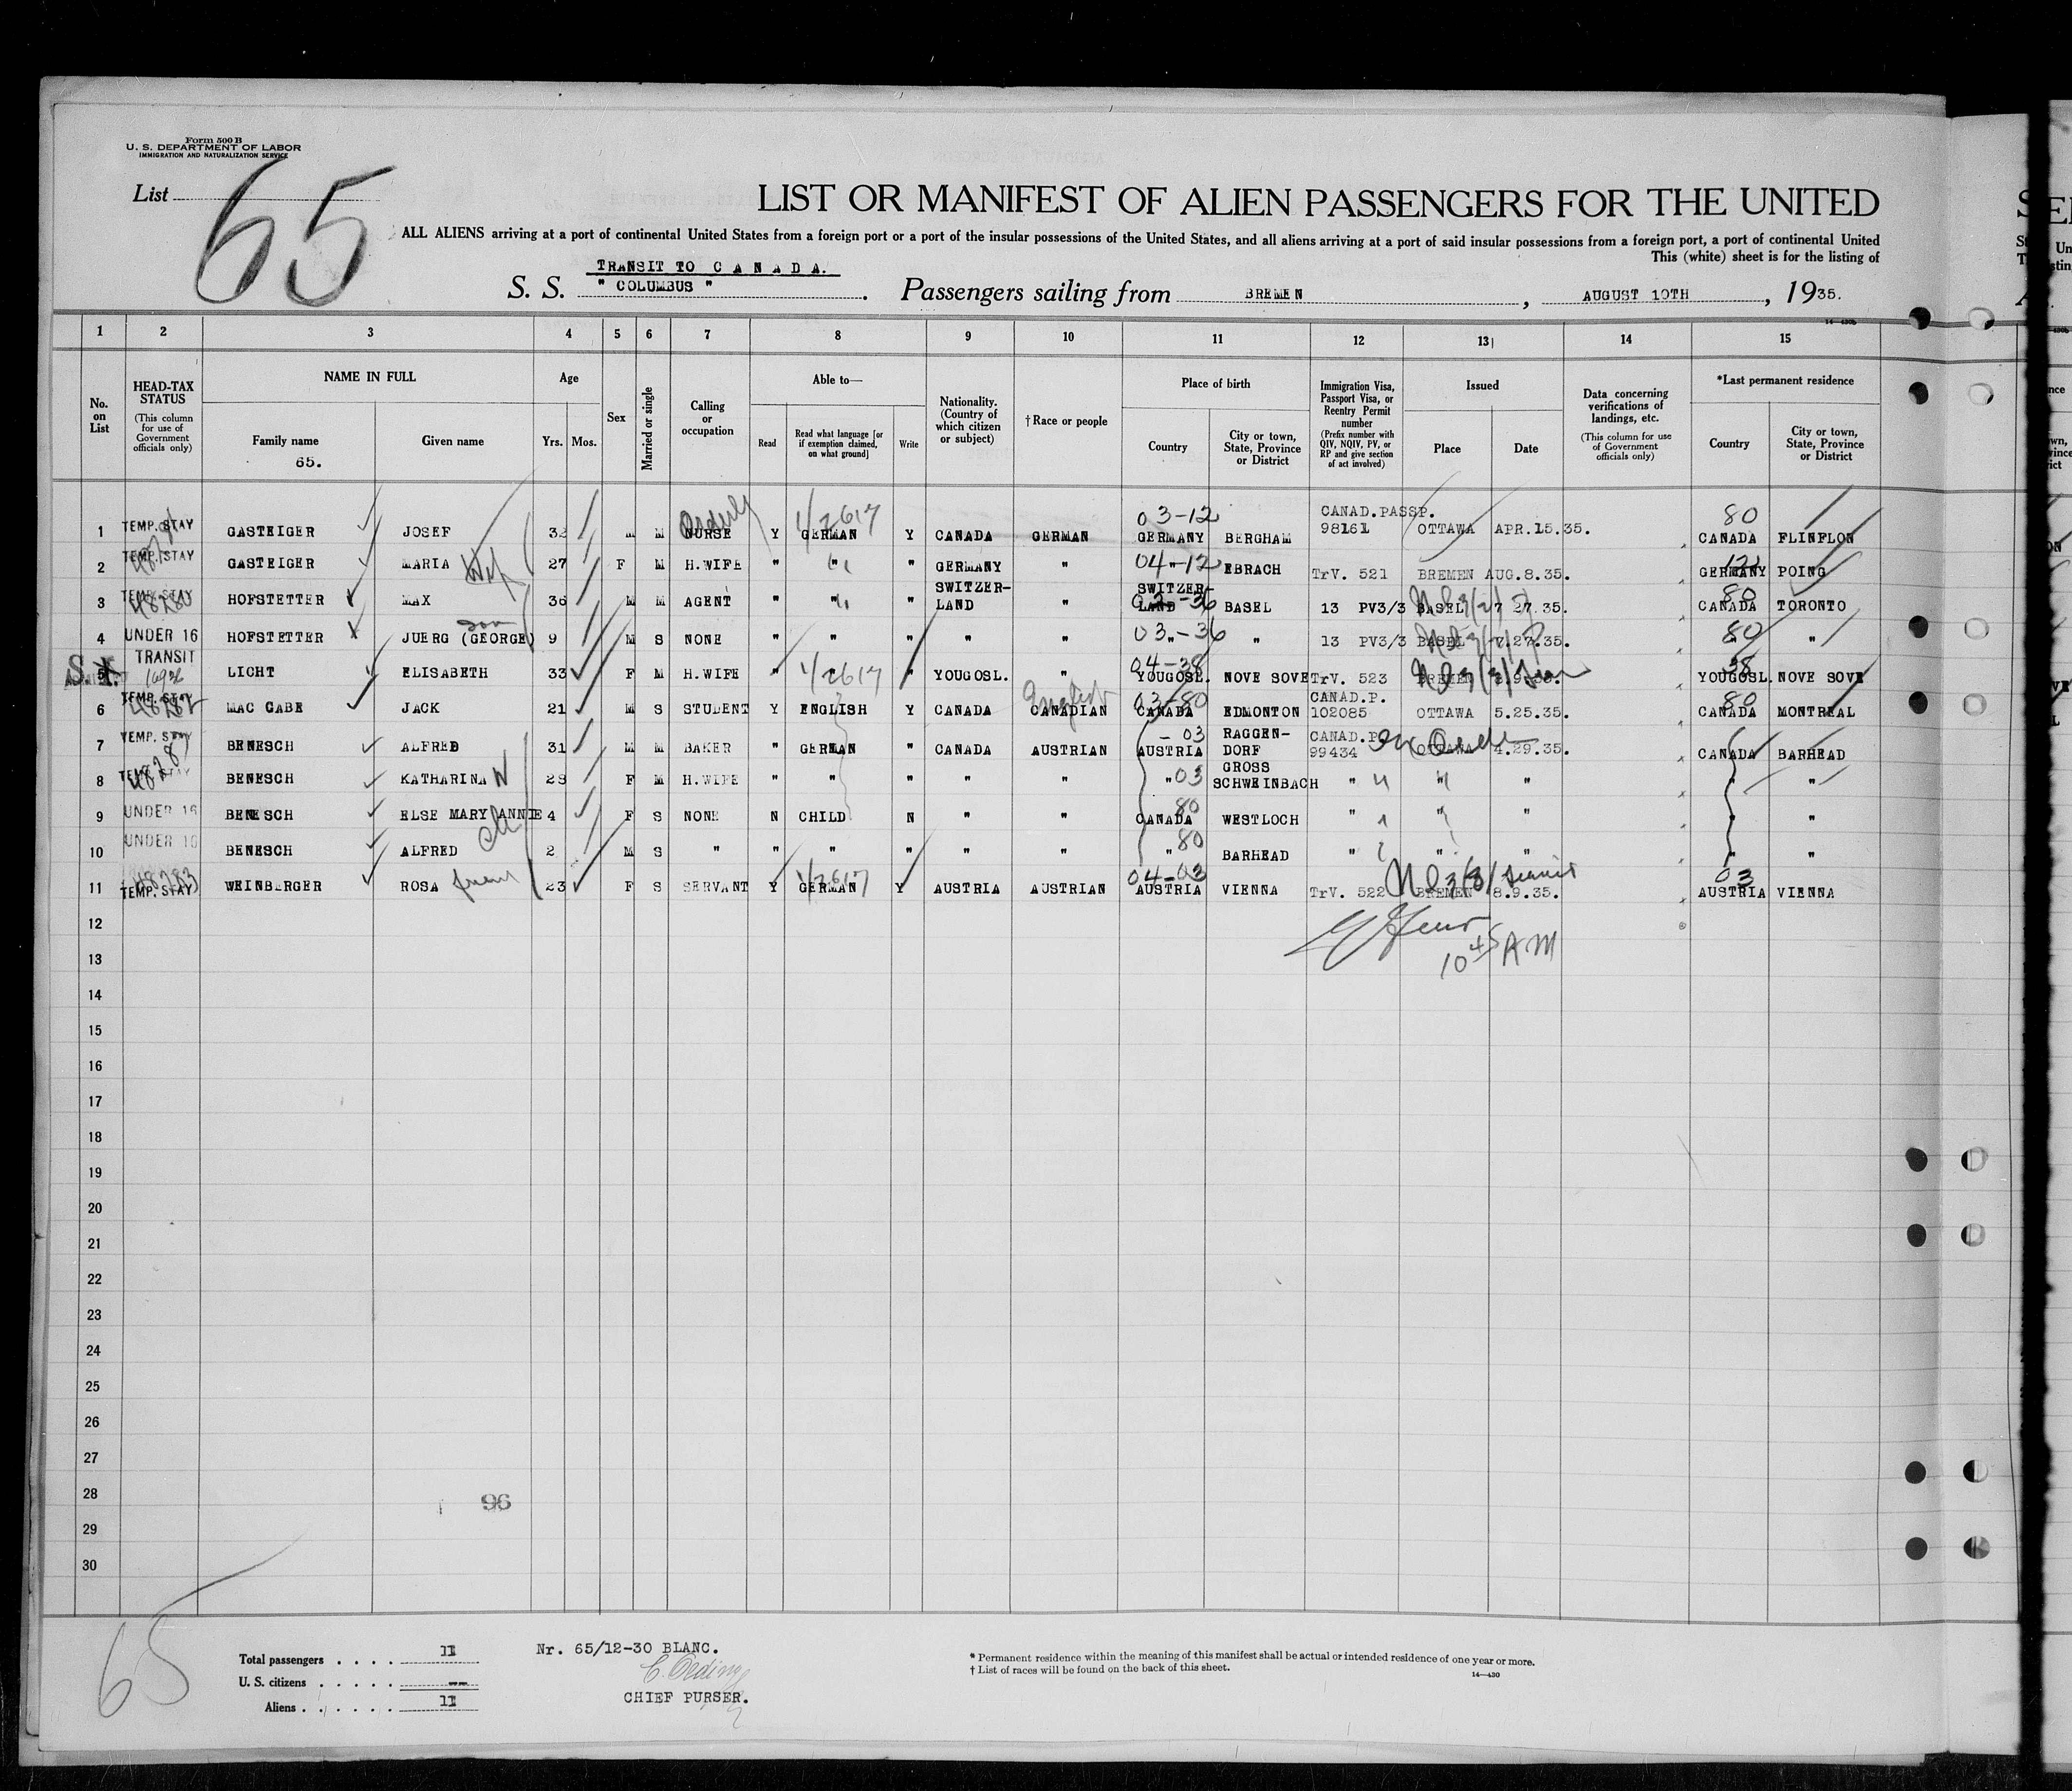 Form 500 B
U. S. DEPARTMENT OF LABOR
IMMIGRATION AND NATURALIZATION SERVICE
List 65
LIST OR MANIFEST OF ALIEN PASSENGERS FOR THE UNITED
ALL ALIENS arriving at a port of continental United States from a foreign port or a port of the insular possessions of the United States, and all aliens arriving at a port of said insular possessions from a foreign port, a port of continental United
This (white) sheet is for the listing of
TRANSIT TO C A N A D A.
S. S. " COLUMBUS " . Passengers sailing from BREMEN , AUGUST 10TH , 1935.
1 2 3 4 5 6 7 8 9 10 11 12 13 14 15
No. on List
HEAD-TAX STATUS (This column for use of Government officials only)
NAME IN FULL
Family name
65.
Given name
Age
Yrs. Mos.
Sex
Married or single
Calling or occupation
Able to—
Read
Read what language [or if exemption claimed, on what ground]
Write
Nationality. (Country of which citizen or subject)
† Race or people
Place of birth
Country
City or town, State, Province or District
Immigration Visa, Passport Visa, or Reentry Permit number (Prefix number with QIV, NQIV, PV, or RP and give section of act involved)
Issued
Place
Date
Data concerning verifications of landings, etc. (This column for use of Government officials only)
*Last permanent residence
Country
City or town, State, Province or District
1 TEMP. STAY GASTEIGER JOSEF 32 M M Orderly NURSE Y 1/2617 GERMAN Y CANADA GERMAN 03-12 GERMANY BERGHAM CANAD.PASSP. 98161 OTTAWA APR.15.35. 80 CANADA FLINFLON
2 TEMP. STAY GASTEIGER MARIA Wf 27 F M H.WIFE " " " GERMANY " 04-12 " EBRACH TrV. 521 BREMEN AUG.8.35. 12 GERMANY POING
3 TEMP. STAY 48280 HOFSTETTER MAX 36 M M AGENT " " " SWITZER-LAND " SWITZER-LAND BASEL 13 PV3/3 BASEL 7 27.35. 80 CANADA TORONTO
4 UNDER 16 HOFSTETTER JUERG (GEORGE) son 9 M S NONE " " " " " 03-36 " " 13 PV3/3 BASEL 7.27.35. 80 " "
S.I. 5 TRANSIT LICHT ELISABETH 33 F M H.WIFE " 1/2617 " YOUGOSL. " 04-38 YOUGOSL. NOVE SOVE TrV. 523 BREMEN 8.9.35. 38 YOUGOSL. NOVE SOVE
6 TEMP. STAY MAC CABE JACK 21 M S STUDENT Y ENGLISH Y CANADA English CANADIAN 03-80 CANADA EDMONTON CANAD.P. 102085 OTTAWA 5.25.35. 80 CANADA MONTREAL
7 TEMP. STAY BENESCH ALFRED 31 M M BAKER " GERMAN " CANADA AUSTRIAN - 03 AUSTRIA RAGGEN-DORF CANAD.P. 99434 OTTAWA 4.29.35. CANADA BARHEAD
8 TEMP. STAY BENESCH KATHARINA W 28 F M H.WIFE " " " " " " 03 GROSS SCHWEINBACH " " " " "
9 UNDER 16 BENESCH ELSE MARY ANNIE 4 F S NONE N CHILD N " " 80 CANADA WESTLOCH " " " " "
10 UNDER 16 BENESCH ALFRED ch 2 M S " " " " " " 80 " BARHEAD " " " " "
11 48283 TEMP. STAY WEINBERGER ROSA 23 F S SERVANT Y 1/2617 GERMAN Y AUSTRIA AUSTRIAN 04-03 AUSTRIA VIENNA TrV. 522 BREMEN 8.9.35. 03 AUSTRIA VIENNA
12
10 45 AM
13
14
15
16
17
18
19
20
21
22
23
24
25
26
27
28
96
29
30
65
Total passengers . . . . 11
U. S. citizens . . . . . --
Aliens . . . . . . 11
Nr. 65/12-30 BLANC.
CHIEF PURSER.
* Permanent residence within the meaning of this manifest shall be actual or intended residence of one year or more.
† List of races will be found on the back of this sheet.
14—430